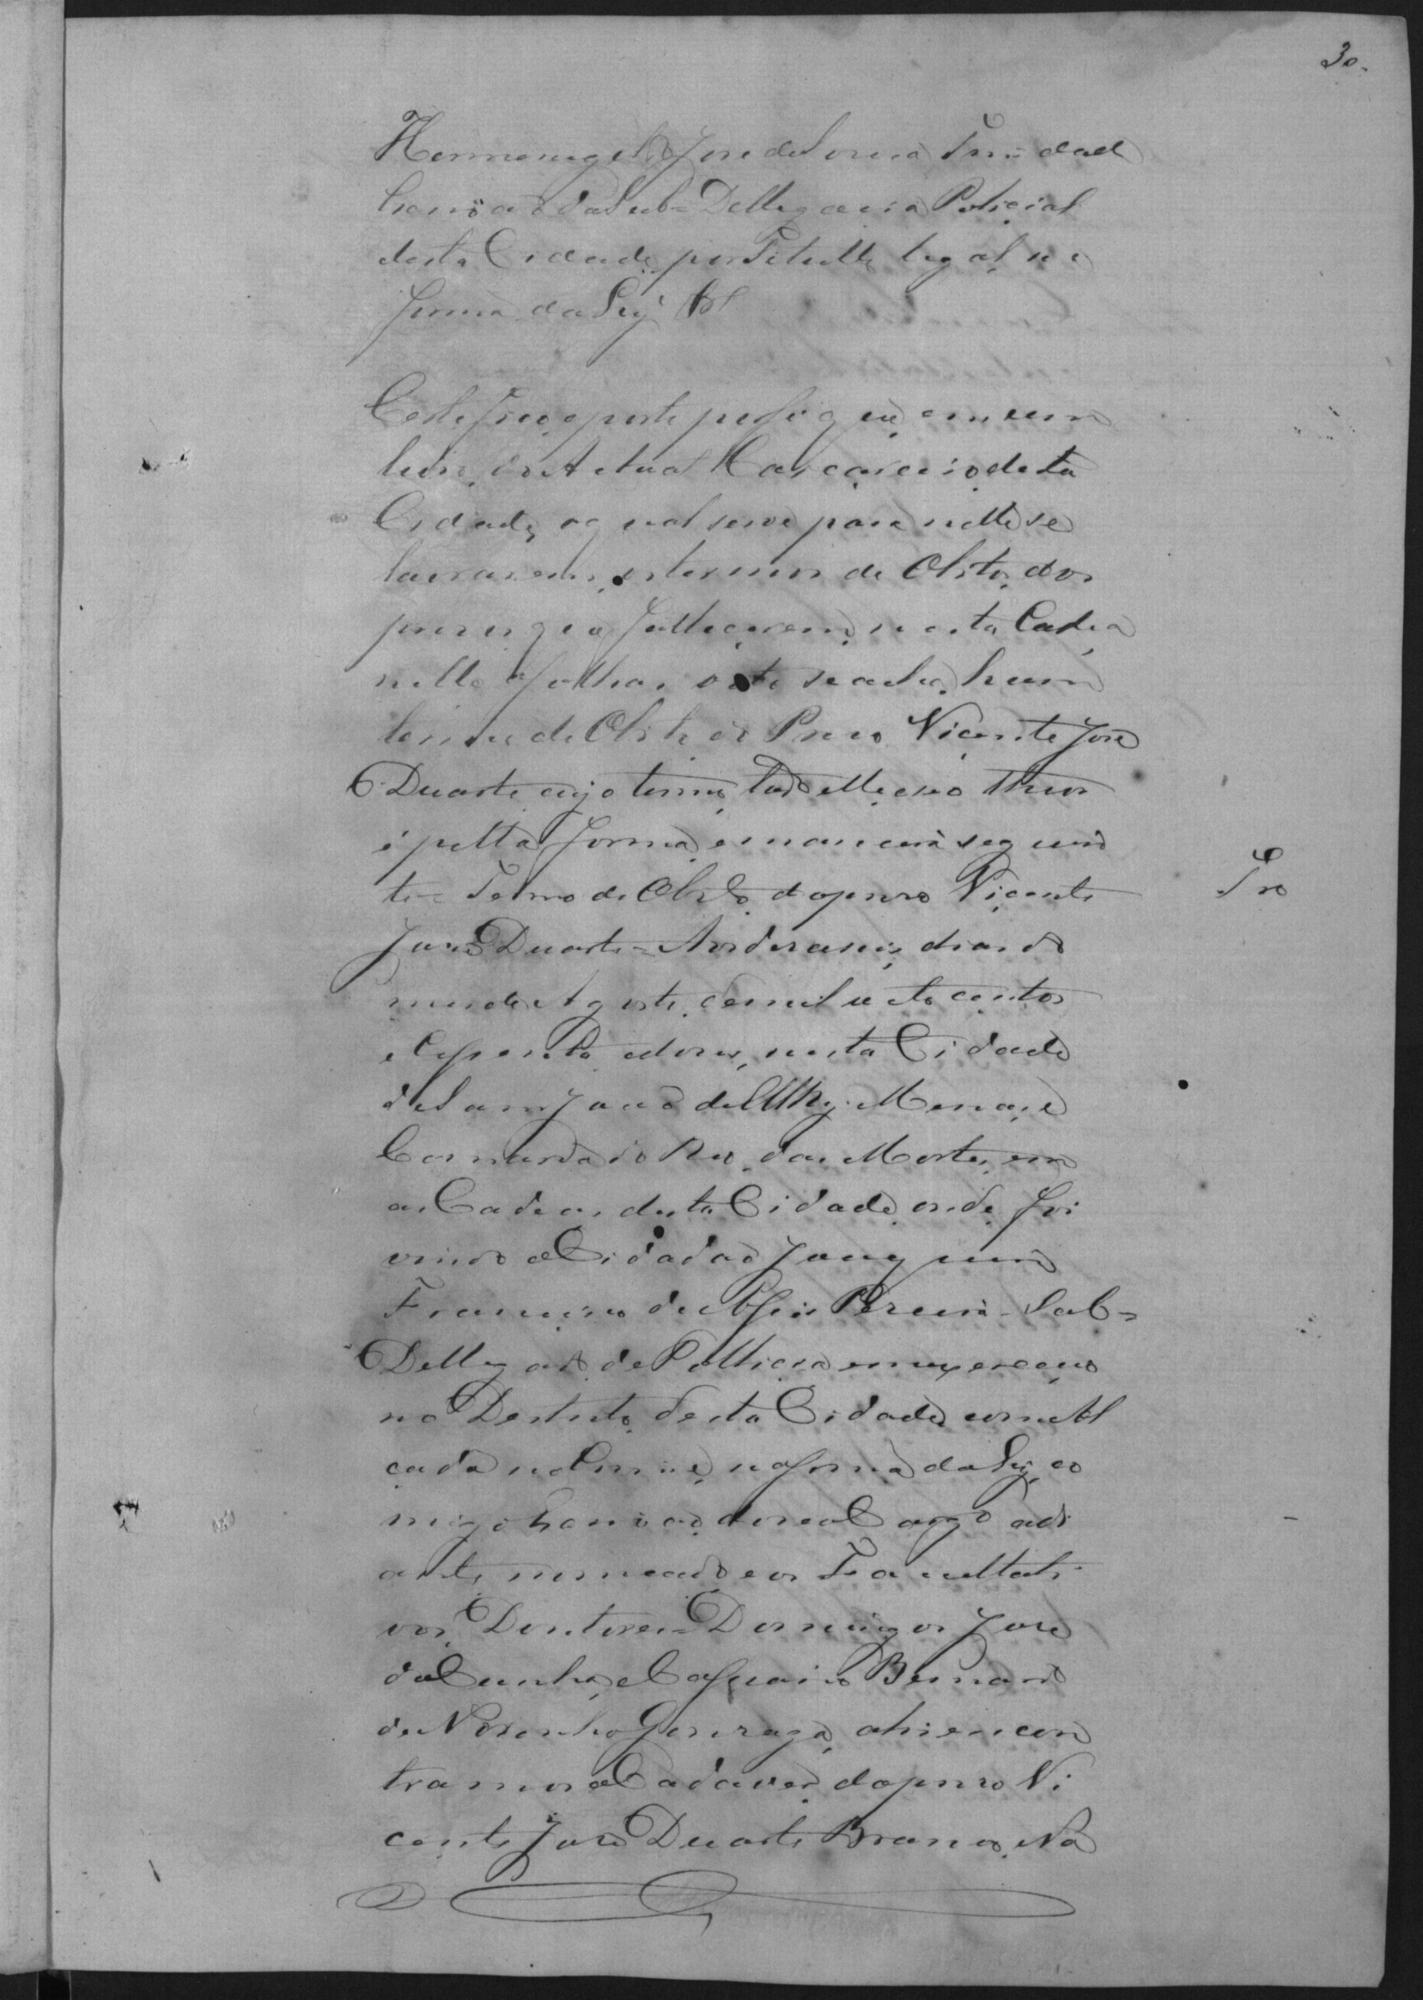 30.
Hermenegildo Jose de Souza Trindade
Escrivaõ da Sub=Dellegacia Policial
desta Cidade, por Titullo legal na
forma da Ley &
Certifico e porto por fé que em um
livro do Actual Carcereiro desta
Cidade, o qual serve para nelle se
lavrarem, os termos de Obitos, dos
prezos que fallecerem, nesta Cadea
nelle a folhas oito se acha, hum
termo de Obito do Prezo, Vicente José
Duarte, cujo termo, todo elle, seo theor
é pella forma, e maneira seguin
te= Termo de Obito, do prezo Vicente
José Duarte= Aos des dias do
mes de Agosto, de mil e oito centos
e Cessenta e dous, nesta Cidade
de Sam Joaõ del Rey, Minas, e
Comarca do Rio, das Mortes, em
as Cadeas, desta Cidade, onde, foi
vindo o Cidadaõ Joaquim
Francisco de Assis Pereira= Sub=
Dellegado, de Pollicia em exercicio
no Destricto, desta Cidade, com Al
cada no Crime, na forma da Ley, co
migo Escrivaõ do seo Cargo adi
ante, nomeado e os Facultati
vos, Doutores= Domingos José
da Cunha, e Cassiano Bernardo
de Noronha Gonzaga, ahi encon
tramos o Cadaver, do prezo Vi
cente José Duarte Branco, Na
Tro